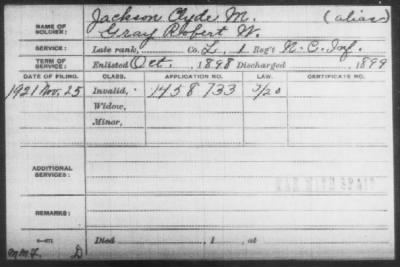 Jackson Clyde M. (alias)
NAME OF SOLDIER: Gray Robert W.
SERVICE: Late rank, Co. L, 1 Reg't N.C. Inf.
TERM OF SERVICE: Enlisted Oct. , 1898 Discharged , 1899
DATE OF FILING. CLASS. APPLICATION NO. LAW. CERTIFICATE NO.
1921 Nov. 25 Invalid, 1458733
Widow,
Minor,
ADDITIONAL SERVICES:
REMARKS:
Died , 1 , at
D